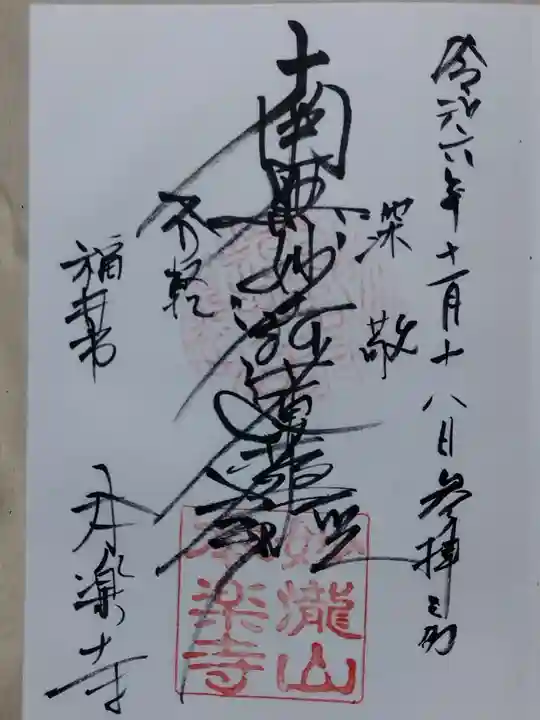 令和六年十一月十八日 参拝之砌
深敬
南無妙法蓮華経
不軽
福井市
本楽寺
妙瀧山
本楽寺